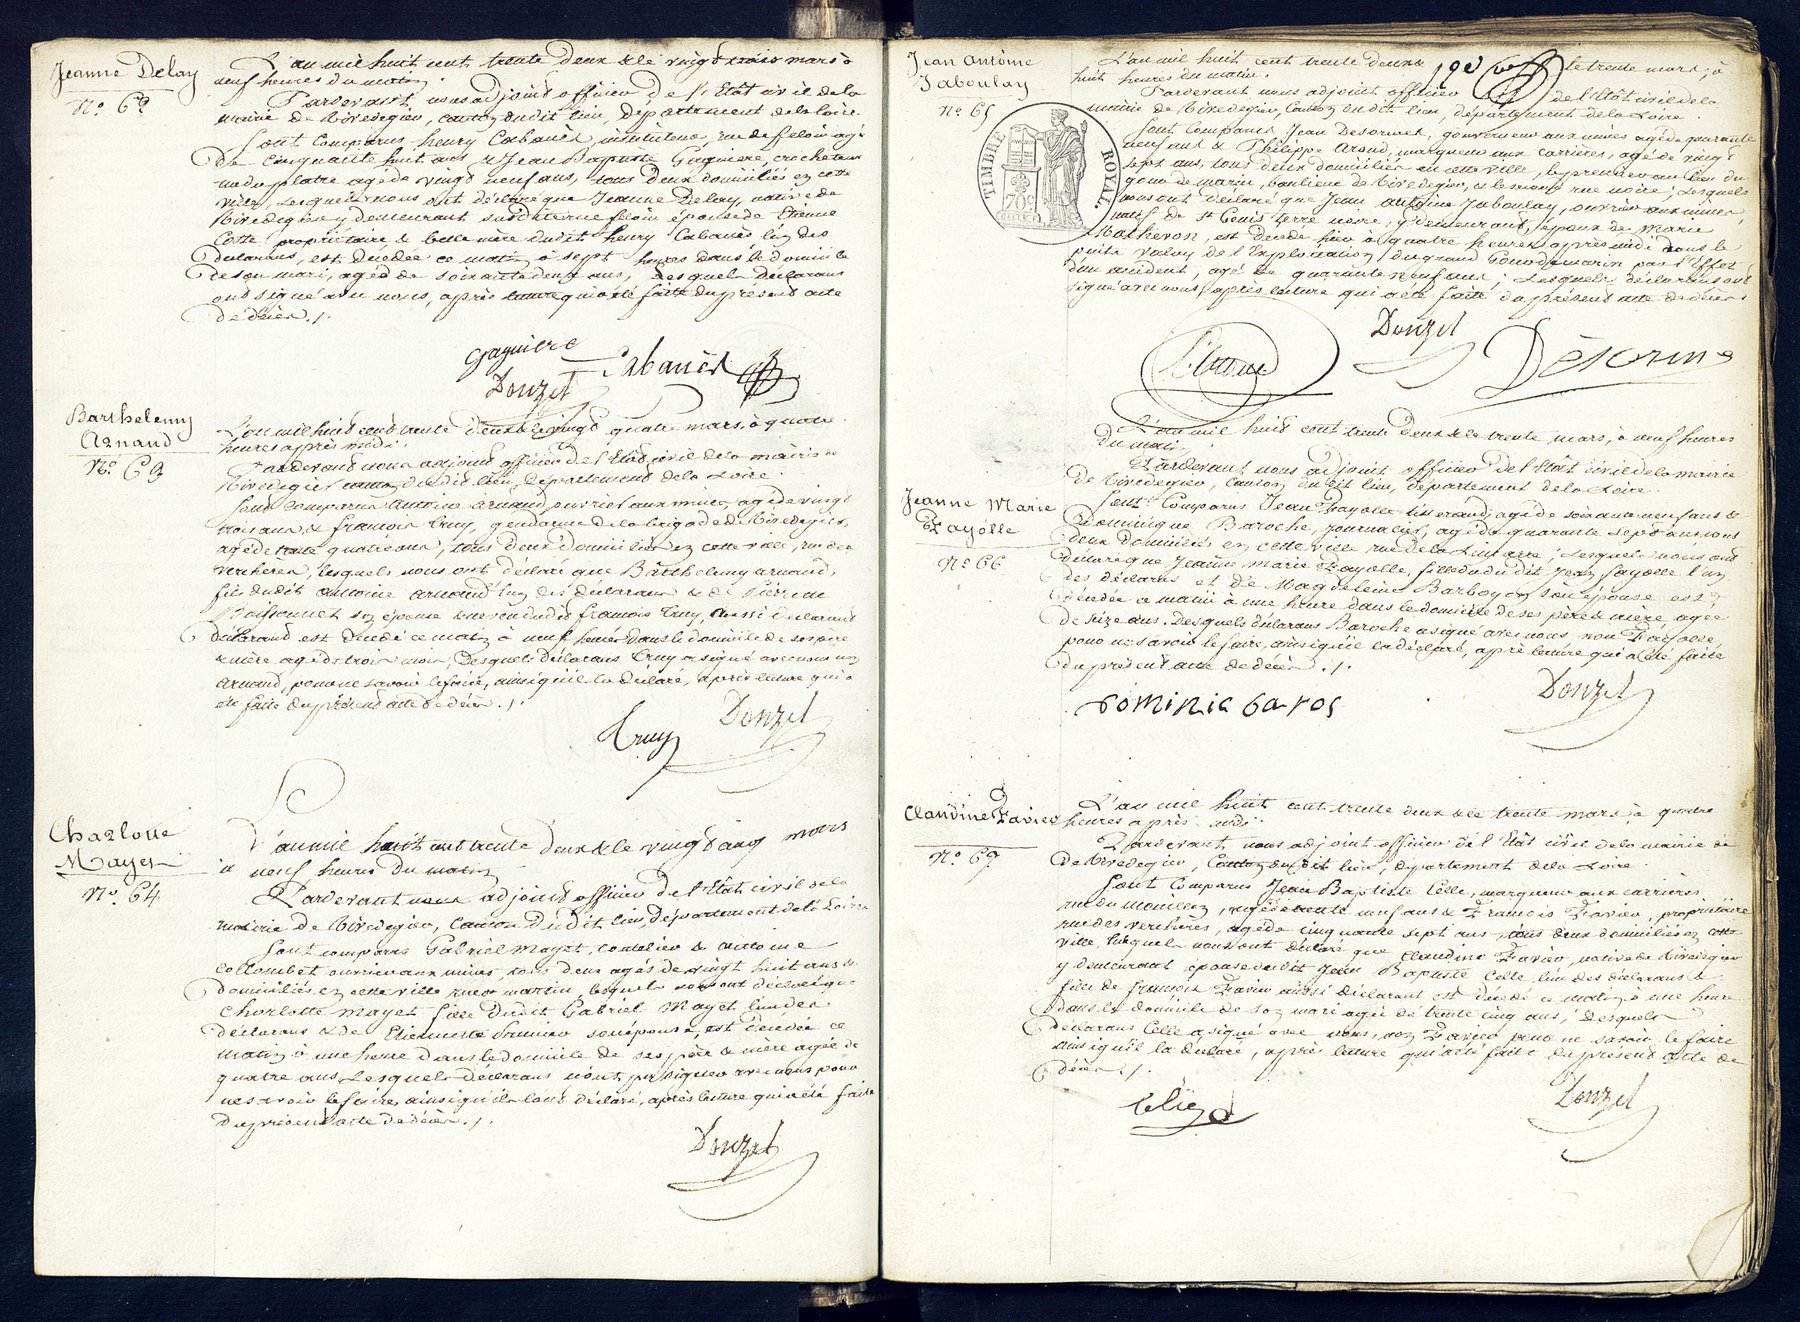 Jeanne Delay
N.o 62
L'an mil huit cent trente deux & le vingt trois mars à
neuf heures du matin.
Pardevant nous adjoint officier de l'Etat civil de la
mairie de Rivedegier, canton dudit lieu, département de la Loire
Sont comparus henry Cabanès, instituteur, rue de feloin agé
De cinquante huit ans & Jean Baptiste Gagniere, crocheteur
rue du platre agé de vingt neuf ans, tous deux domiciliés en cette
ville, Lesquels nous ont déclaré que Jeanne Delay, native de
Rivedegier y demeurant susdite rue feloin épouse de Etienne
Coste propriétaire & belle mère dudit henry Cabanès l'un des
déclarans, est décédée ce matin à sept heures dans le domicile
de son mari, agée de soixante deux ans, Lesquels Déclarans
ont signé avec nous, après lecture qui a été faite du présent acte
de décès ./.
Gagniere
Cabanès
Donzel
Barthelemy
Arnaud
N.o 63
L'an mil huit cent trente deux & le vingt quatre mars, à quatre
heures après midi.
Pardevant nous adjoint officier de l'Etat civil de la mairie de
Rivedegier canton dudit lieu, Département de la Loire.
Sont comparus Antoine Arnaud ouvrier aux mines, agé de vingt
trois ans & francois Cruy, gendarme de la brigade de Rivedegier,
agé de trente quatre ans, tous Deux Domiciliés en cette ville, rue des
vercheres, lesquels nous ont déclaré que Barthelemy arnaud,
fils dudit antoine arnaud l'un des déclarans & de Pierrette
Boissonnet son épouse & neveu dudit francois Cruy, aussi déclarant
déclarant est décédé ce matin à neuf heures Dans le domicile de ses père
& mère agé de trois mois, Lesquels Déclarans Cruy a signé avec nous non
Arnaud, pour ne savoir le faire, ainsi qu'il l'a déclaré, après lecture qui a
été faite du présent acte de décès ./.
Cruy
Donzel
Charlotte
Mayet
N.o 64
L'an mil huit cent trente deux & le vingt cinq mars
à neuf heures du matin
Pardevant nous adjoint officier de l'Etat civil de la
mairie de Rivedegier, Canton Dudit lieu, Département de la Loire
Sont comparus Gabriel Mayet, coutelier & antoine
Collombet ouvrier aux mines, tous deux agés de vingt huit ans &
domiciliés en cette ville rue st martin, lesquels nous ont déclaré que
Charlotte Mayet fille dudit Gabriel Mayet l'un des
déclarans & de Etiennette Prunier son épouse, est décédée ce
matin à une heure dans le domicile de ses père & mère agée de
quatre ans Lesquels Déclarans n'ont pu signer avec nous pour
ne savoir le faire, ainsi qu'ils l'ont déclaré, après lecture qui a été faite
du présent acte de décès ./.
Donzel
Jean Antoine
Jaboulay
N.o 65
TIMBRE ROYAL.
70c
L'an mil huit cent trente deux & le trente mars, à
huit heures du matin.
Pardevant nous adjoint officier de l'Etat civil de la
mairie de Rivedegier, Canton dudit lieu, département de la Loire.
Sont Comparus Jean Desormes, gouverneur aux mines agé de quarante
neuf ans & Philippe Aroud, marqueur aux carrières, agé de vingt
sept ans, tous deux domiciliés en cette ville, le premier au lieu du
gour de marin, banlieue de Rivedegier, & le second rue noire, Lesquels
nous ont déclaré que Jean Antoine Jaboulay, ouvrier aux mines,
natif de St Genis terre noire, y demeurant, époux de Marie
Matheron, est décédé hier à quatre heures après midi dans le
puits Valoy de l'Exploitation du grand Gourdemarin par l'Effet
d'un accident, agé de quarante neuf ans; Lesquels déclarans ont
signé avec nous, après lecture qui a été faite du présent acte de décès
Donzel
Aroud
Désormes
Jeanne Marie
Fayolle
N.o 66
L'an mil huit cent trente deux & le trente mars, à neuf heures
Du matin
Pardevant nous adjoint officier de l'Etat civil de la mairie
de Rivedegier, Canton dudit lieu, Département de la Loire.
Sont Comparus Jean Fayolle tisserand, agé de soixante neuf ans &
Dominique Baroche, journalier, agé de quarante sept ans, tous
deux Domiciliés en cette ville rue de la Lumiere; Lesquels nous ont
déclaré que Jeanne Marie Fayolle, fille du dit Jean fayolle l'un
des déclarans et de Magdeleine Barboyon son épouse est
Décédée ce matin à une heure dans le domicile de ses père & mère agée
De seize ans. Lesquels déclarans Baroche a signé avec nous, non Fayolle
pour ne savoir le faire, ainsi qu'il l'a déclaré, après lecture qui a été faite
du présent acte de décès ./.
Dominic baros
Donzel
Claudine Favier
N.o 67
L'an mil huit cent trente deux & le trente mars, à quatre
heures après midi.
Pardevant nous adjoint officier de l'Etat civil de la mairie de
de Rivedegier, Canton du dit lieu, département de la Loire.
Sont Comparus Jean Baptiste Celle, marqueur aux carrières
rue du mouillon, agé de trente neuf ans & Francois Favier, propriétaire
rue des verchères, agé de cinquante sept ans, tous deux domiciliés en cette
ville, lesquels nous ont déclaré que Claudine Favier, native de Rivedegier
y demeurant épouse dudit Jean Baptiste Celle l'un des déclarans &
fille de francois Favier aussi déclarant est décédée ce matin à une heure
dans le domicile de son mari agée de trente cinq ans; Lesquels
déclarans Celle a signé avec nous, non Favier pour ne savoir le faire
ainsi qu'il l'a déclaré, après lecture qui a été faite du présent acte de
décès ./.
Donzel